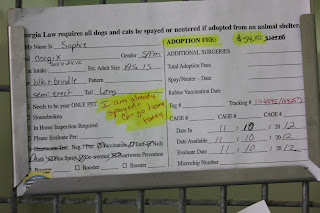 orgia Law requires all dogs and cats be spayed or neutered if adopted from an animal shelter.
My Name Is Sophie
Corgix
Gender S/Fm
on Intake
Est. Adult Size AS IS
blk brindle Pattern
semi erect Tail Long
Needs to be your ONLY PET
Housebroken
In Home Inspection Required
Please Evaluate For
I am already spayed & can go home today
Neg. / Pos. Vaccination Ears Nails
Flea Spray De-wormed Heartworm Prevention
Booster Booster
ADOPTION FEE: $54.00
ADDITIONAL SURGERIES:
Total Adoption Fees
Spay/Neuter – Date
Rabies Vaccination Date
Tag # Tracking #
CAGE # CAGE #
Date In 11 10 2012
Date Available 11 10 2012
Evaluate Date 11 20 2012
Microchip Number